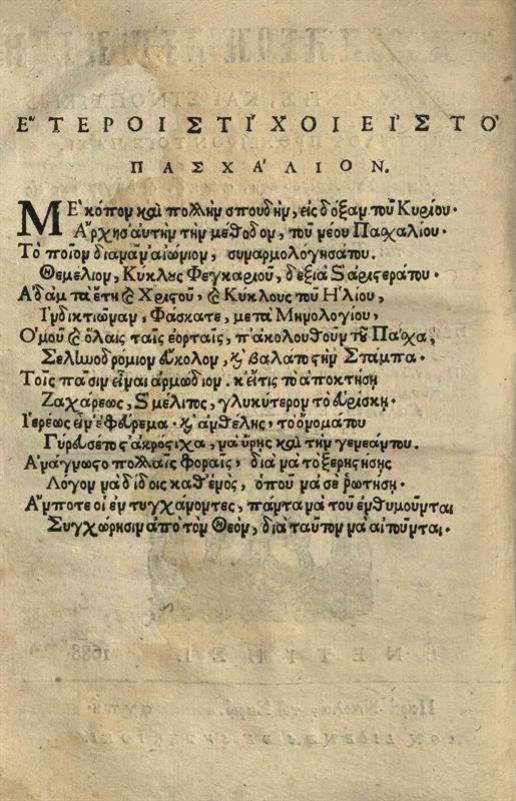 ΕʺΤΕΡΟΙ ΣΤΙ´ΧΟΙ ΕΙΣ ΤΟ`
ΠΑΣΧΑ´ΛΙΟΝ.
ΜΕ κόπον καὶ πολλὴν σπουδὴν, εἰς δόξαν τοῦ Κυρίου·
Ἄρχησα ἀυτὴν τὴν μέθοδον, τοῦ νέου Πασχαλίου·
Τὸ ποῖον διὰ ναν᾽ αἰώνιον, συναρμολόγησά του·
Θεμέλιον, Κύκλους Φεγκαριοῦ, δεξιὰ ϛ ἀριστερά του·
Ἀδὰμ τὰ ἔτη ϗ Χριστοῦ, ϗ Κύκλους τοῦ Ἡλίου,
Ἰνδικτιῶναν, Φάσκατε, μετὰ Μηνολογίου,
Ὁμοῦ ϗ ὅλαις ταῖς ἑορταῖς, π᾽ ἀκολουθοῦν τὸ Πάσχα,
Σεληνοδρόμιον ἔυκολον, ϗ βαλα το στὴν Στάμπα·
Τοῖς πᾶσιν εἶναι ἁρμώδιον· κ᾽ εἴτις τὸ ἀποκτήση
Ζαχάρεως, ϛ μέλιτος, γλυκύτερον τὸ ἑυρίσκη·
Ἱερέως εἶν ἐφέυρεμα· ϗ ἂν θέλης, τὸ ὄνομά του
Γύρευσέ το ς ἀκρόστιχα, νὰ ὕρης καὶ τὴν γενεάν του.
Ἀνάγνωσ το πολλαῖς φοραῖς, διὰ νὰ τὸ ξερηγήσης
Λόγον νὰ δίδοις καθενός, ὁποῦ νὰ σὲ ῥωτήση·
Ἄμποτε οἱ ἐντυγχάνοντες, πάντα νὰ τοῦ ἐνθυμοῦνται
Συγχώρησιν ἀπὸ τὸν Θεὸν, διὰ ταῦτον νὰ αἰτοῦνται·